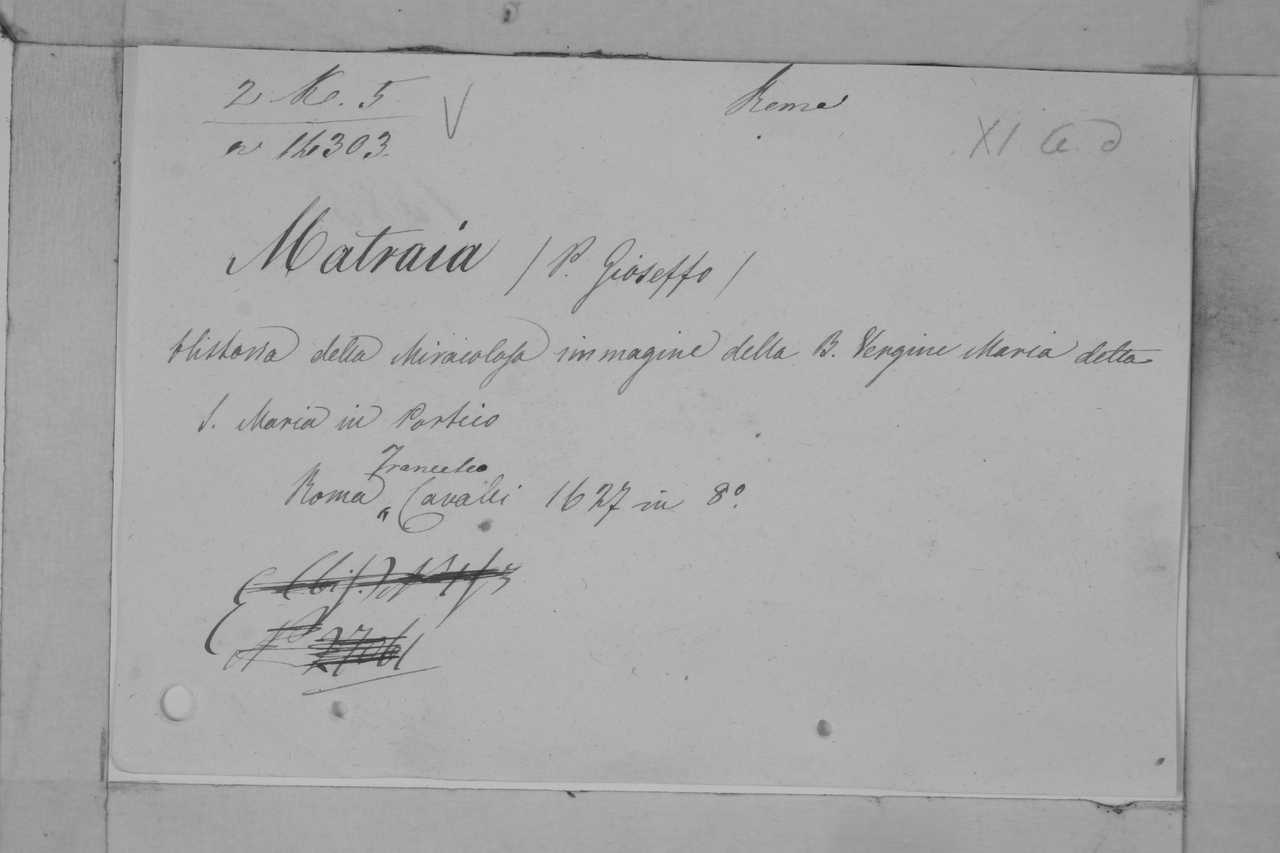 2 K. 5
Rome
V
XI G. d
a 14303.
Matraia / P. Gioseffo /
Historia della Miracolosa immagine della B. Vergine Maria detta
S. Maria in Portico
Francesco
Roma Cavalli 1627 in 8º.